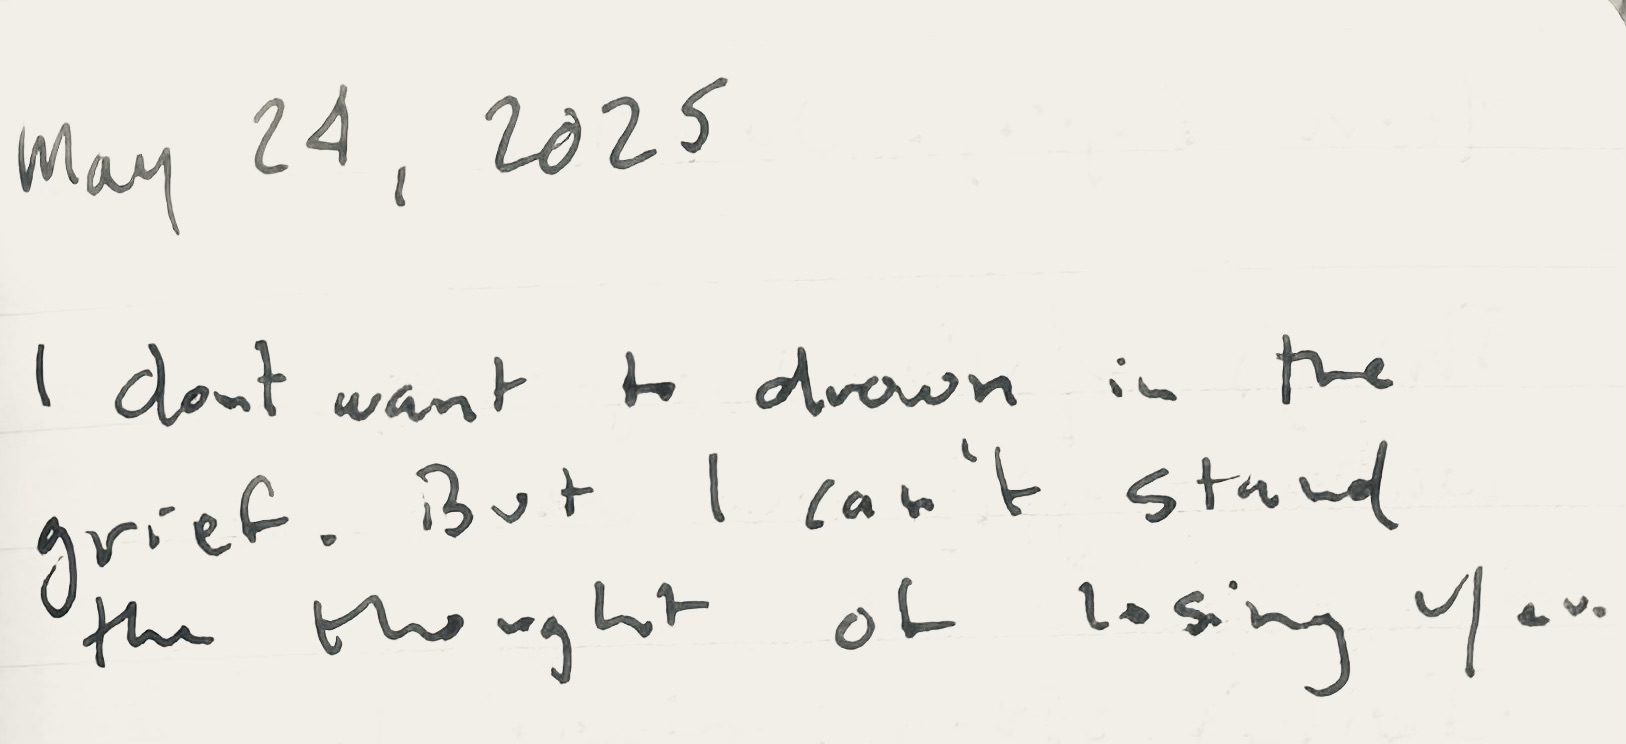 May 24, 2025
I dont want to drown in the
grief. But I can't stand
the thought of losing you.